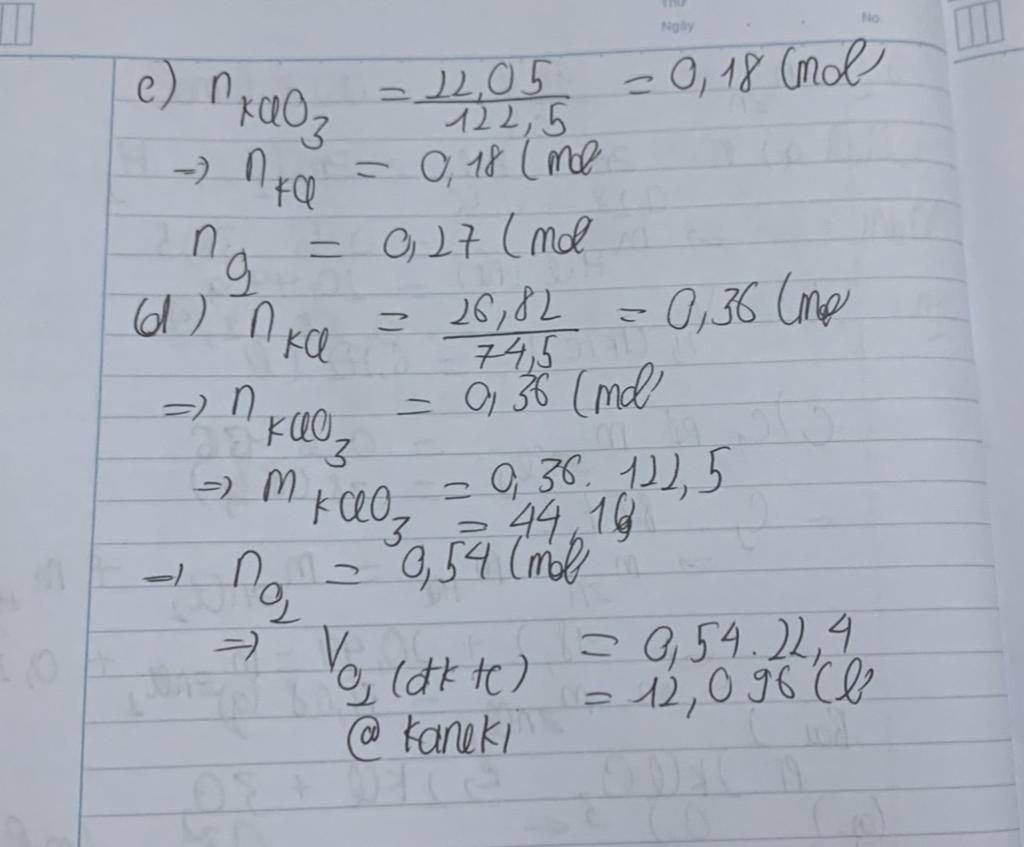 Thứ
Ngày . . No.
c) nKClO3 = 22,05/122,5 = 0,18 (mol)
→ nKCl = 0,18 (mol
nO2 = 0,27 (mol
(d) nKCl = 26,82/74,5 = 0,36 (mol
=> nKClO3 = 0,36 (mol)
=> mKClO3 = 0,36. 122,5
= 44,1g
→ nO2 = 0,54 (mol)
=> VO2 (đktc) = 0,54.22,4
= 12,096 (l)
@ kaneki